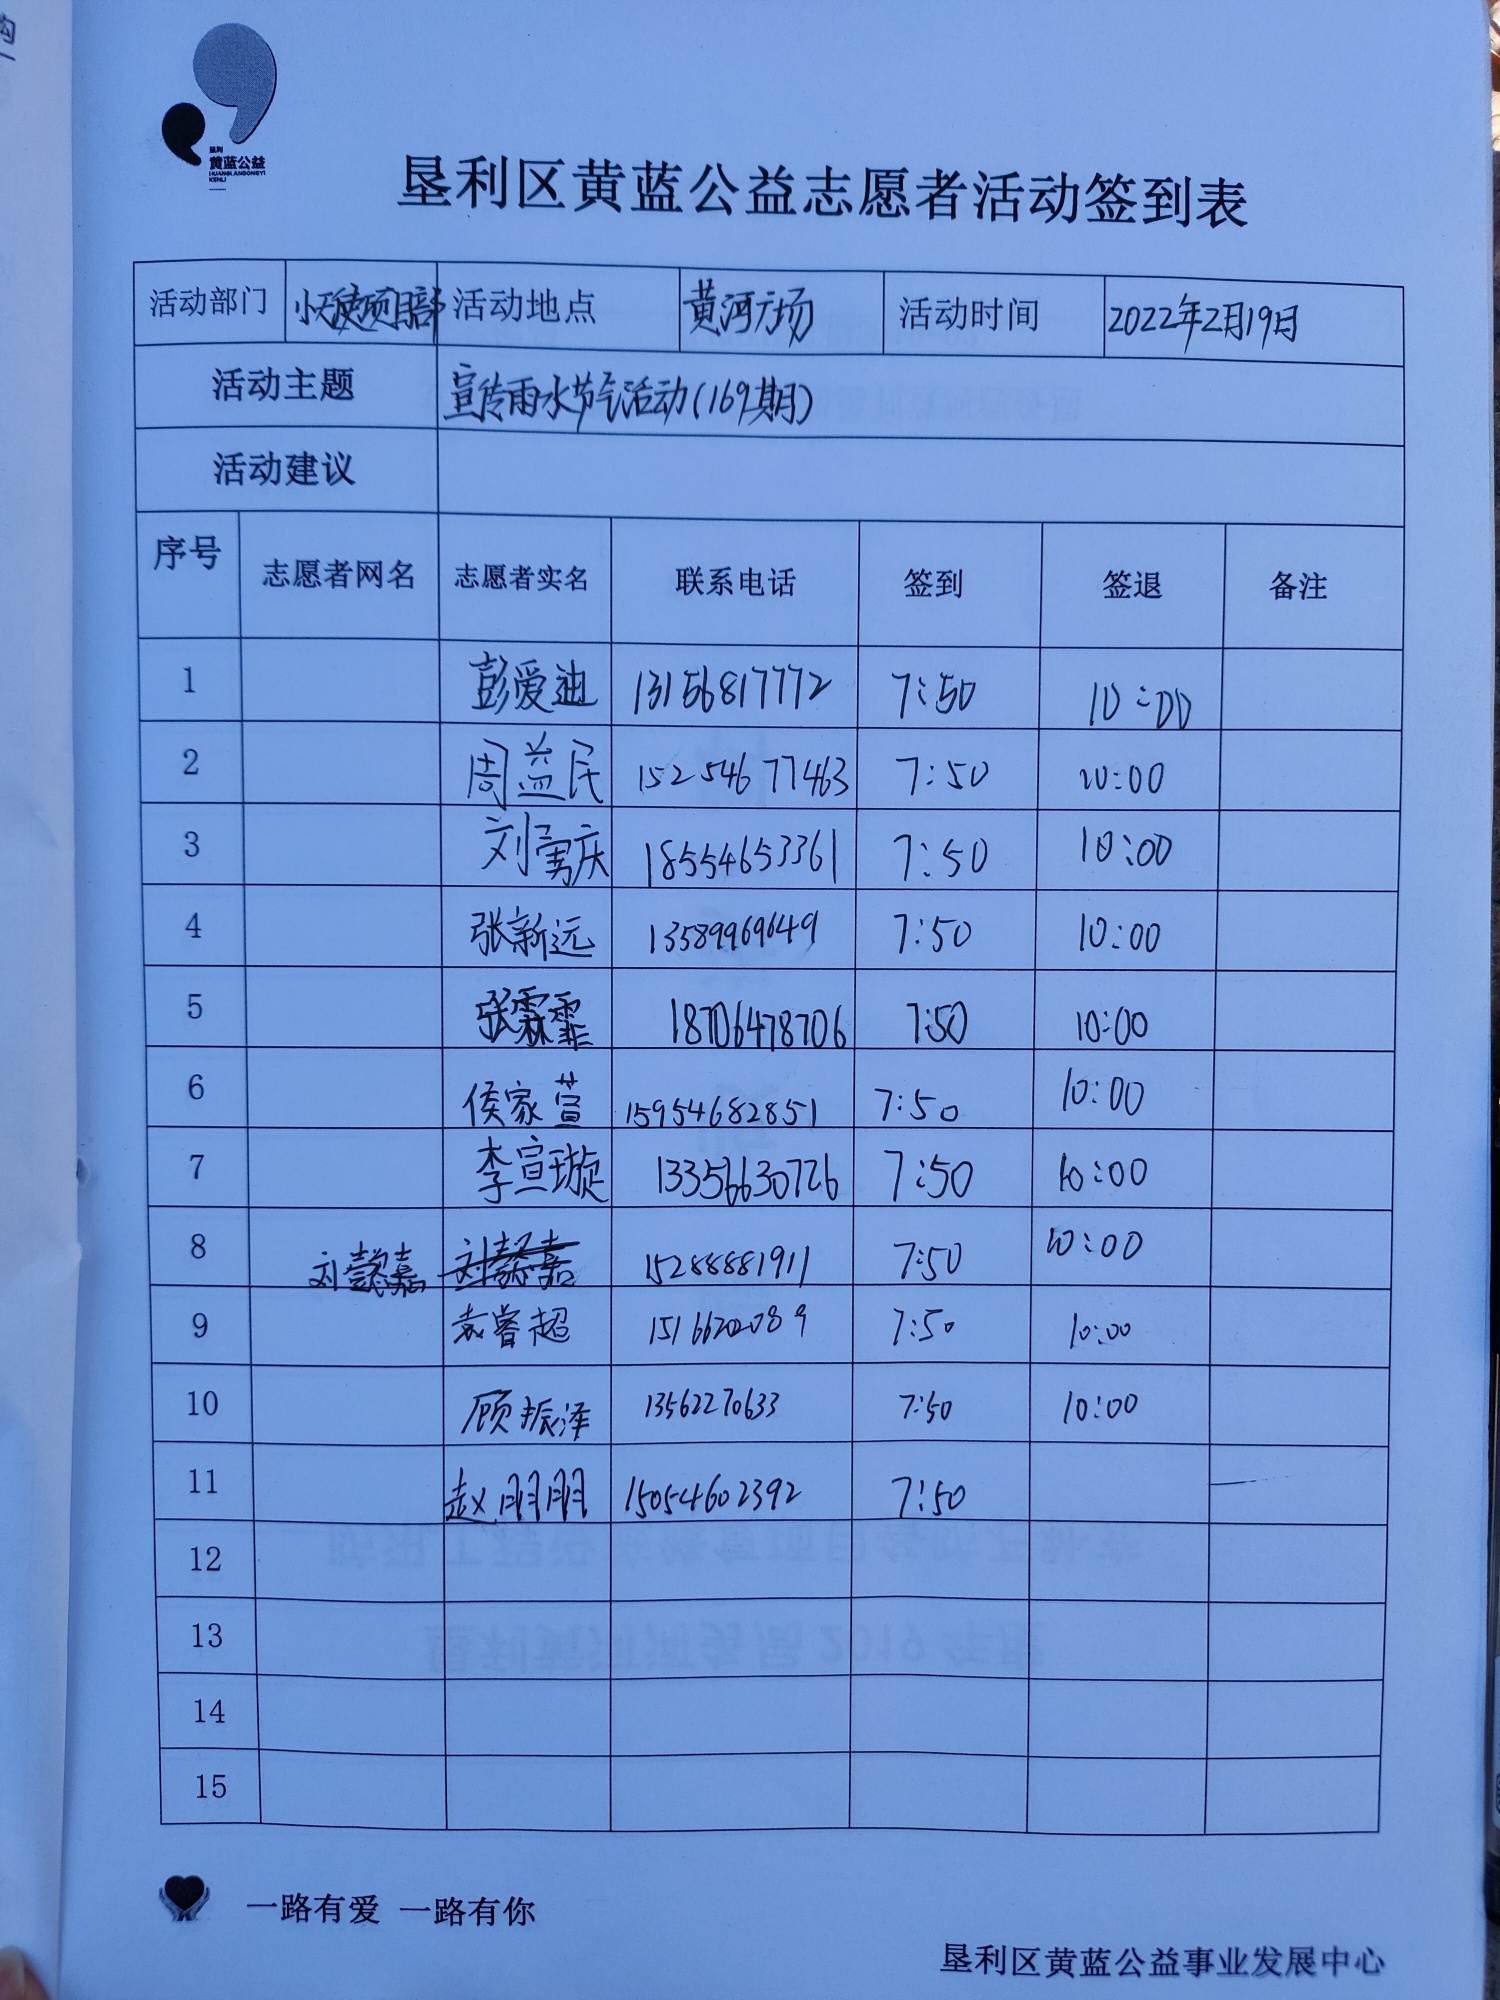 垦利
黄蓝公益
HUANGLANGONGYI
KENLI
垦利区黄蓝公益志愿者活动签到表
活动部门 小天使项目部 活动地点 黄河广场 活动时间 2022年2月19日
活动主题 宣传雨水节气活动(169期)
活动建议
序号 志愿者网名 志愿者实名 联系电话 签到 签退 备注
1 彭爱迪 13156817772 7:50 10:00
2 周益民 15254677463 7:50 10:00
3 刘雳庆 18554653361 7:50 10:00
4 张新远 13589969649 7:50 10:00
5 张霖霏 18706478706 7:50 10:00
6 侯家萱 15954682851 7:50 10:00
7 李宣璇 13356630726 7:50 10:00
8 刘懿嘉 刘懿嘉 15288881911 7:50 10:00
9 袁睿超 15166202089 7:50 10:00
10 顾振泽 13562270633 7:50 10:00
11 赵朋朋 15054602392 7:50
12
13
14
15
一路有爱 一路有你
垦利区黄蓝公益事业发展中心